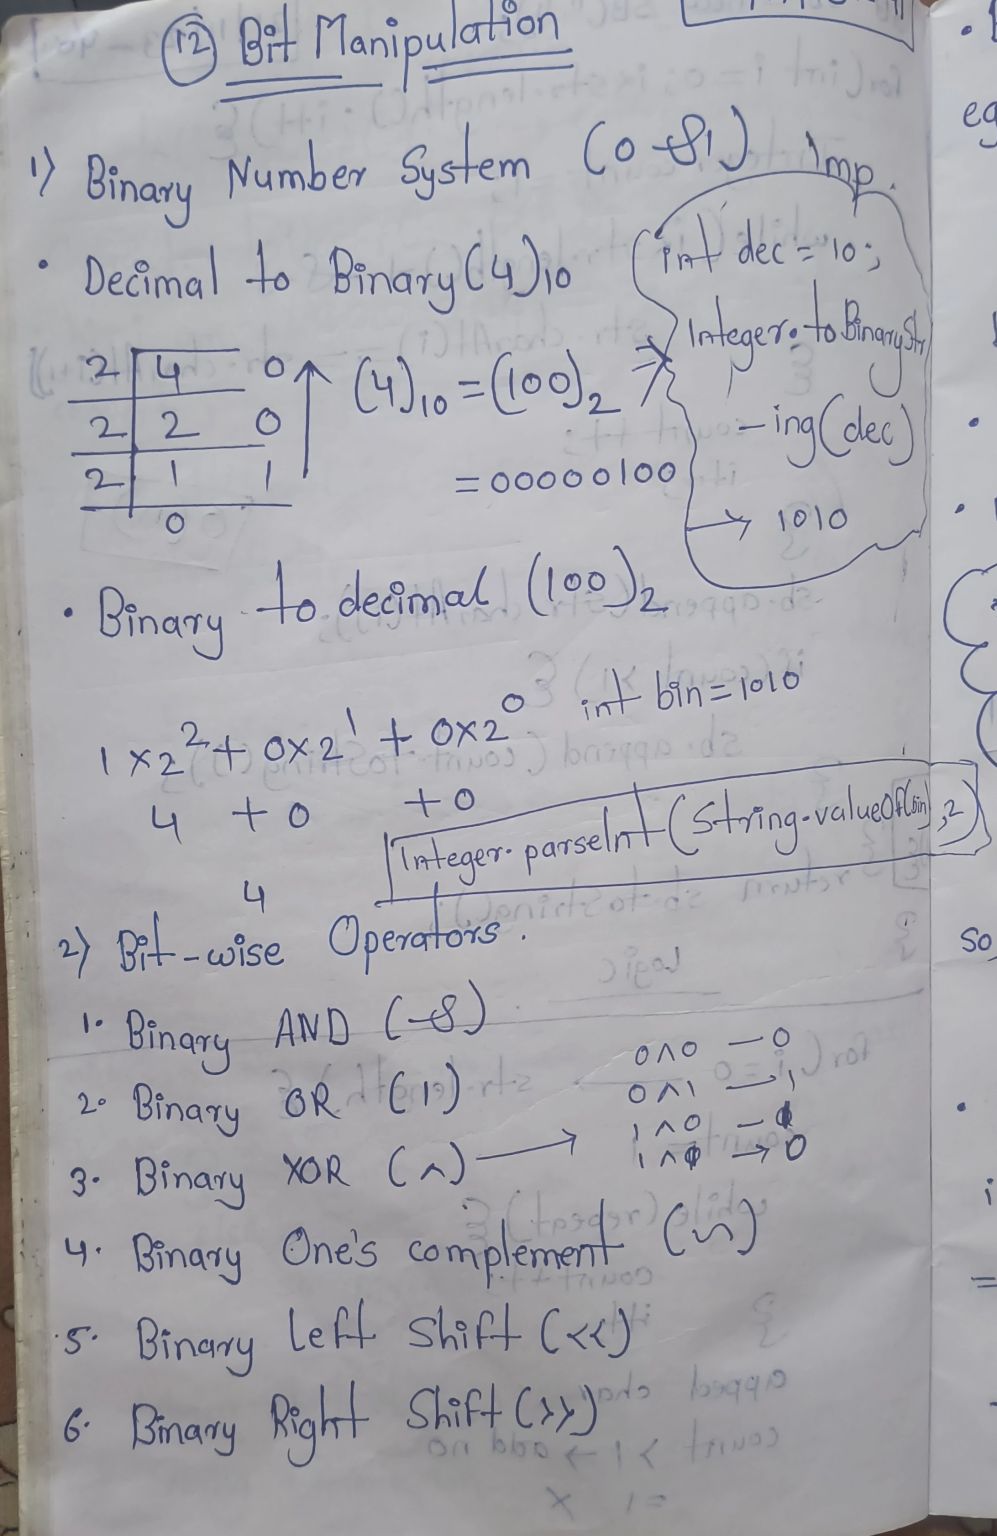 12 Bit Manipulation
1) Binary Number System (0 & 1)
Imp.
• Decimal to Binary (4)10
int dec = 10;
Integer.toBinaryStr
- ing(dec)
→ 1010
2 | 4 0
2 | 2 0
2 | 1 1
0
(4)10 = (100)2
= 00000100
• Binary to decimal (100)2
int bin = 1010
1 x 2² + 0x2¹ + 0x2⁰
4 + 0 + 0
Integer.parseInt(String.valueOf(bin),2)
4
2) Bit-wise Operators.
1. Binary AND (&)
2. Binary OR (|)
3. Binary XOR (^) →
0^0 – 0
0^1 – 1
1^0 – 1
1^1 → 0
4. Binary One's complement (~)
5. Binary Left Shift (<<)
6. Binary Right Shift (>>)
eg
so,